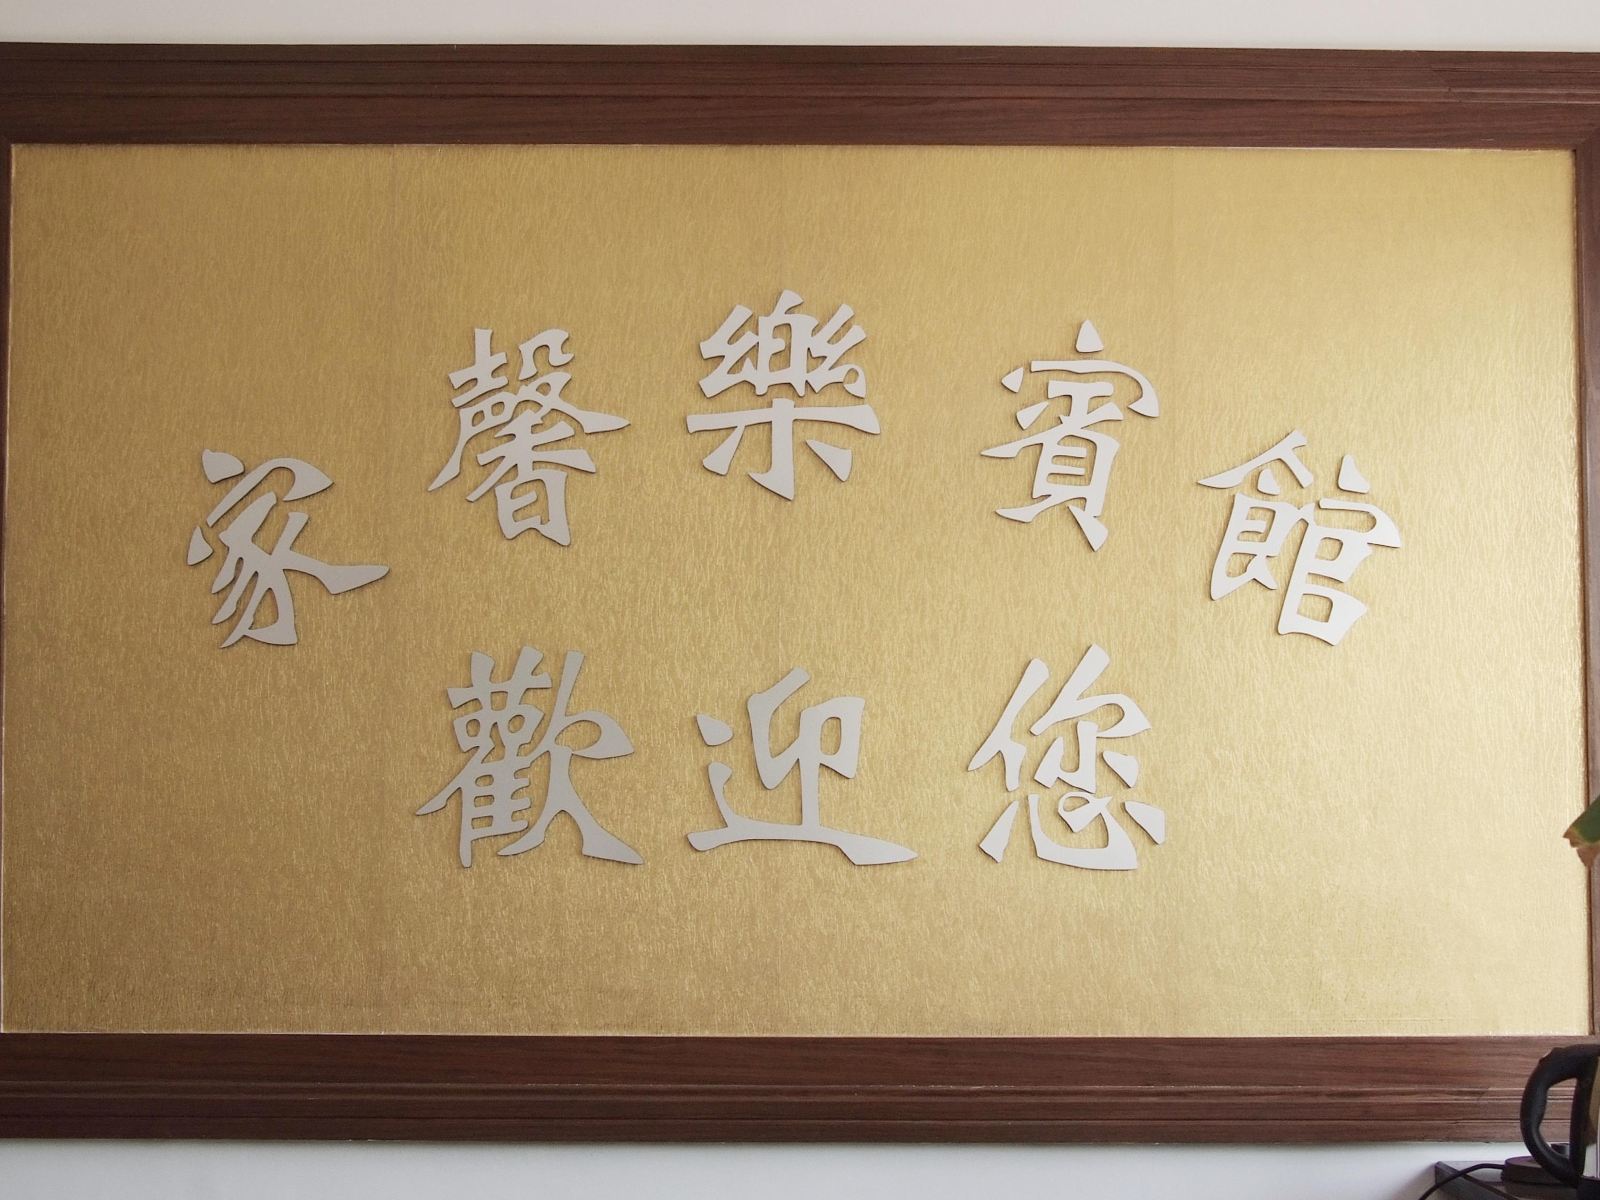 家馨樂賓館
歡迎您